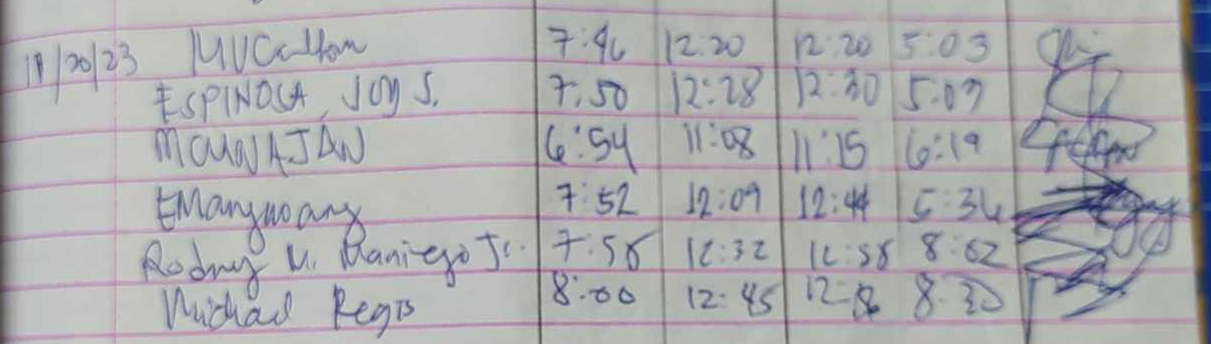 11/20/23 MVCalton 7:46 12:20 12:20 5:03
ESPINOSA, JOY S. 7:50 12:28 12:30 5:09
6:54 11:08 11:15 6:19
EMangwang 7:52 12:09 12:44 5:34
Rodney M. Maniego Jr. 7:58 12:32 12:58 8:02
Michael Regis 8:00 12:45 8:30